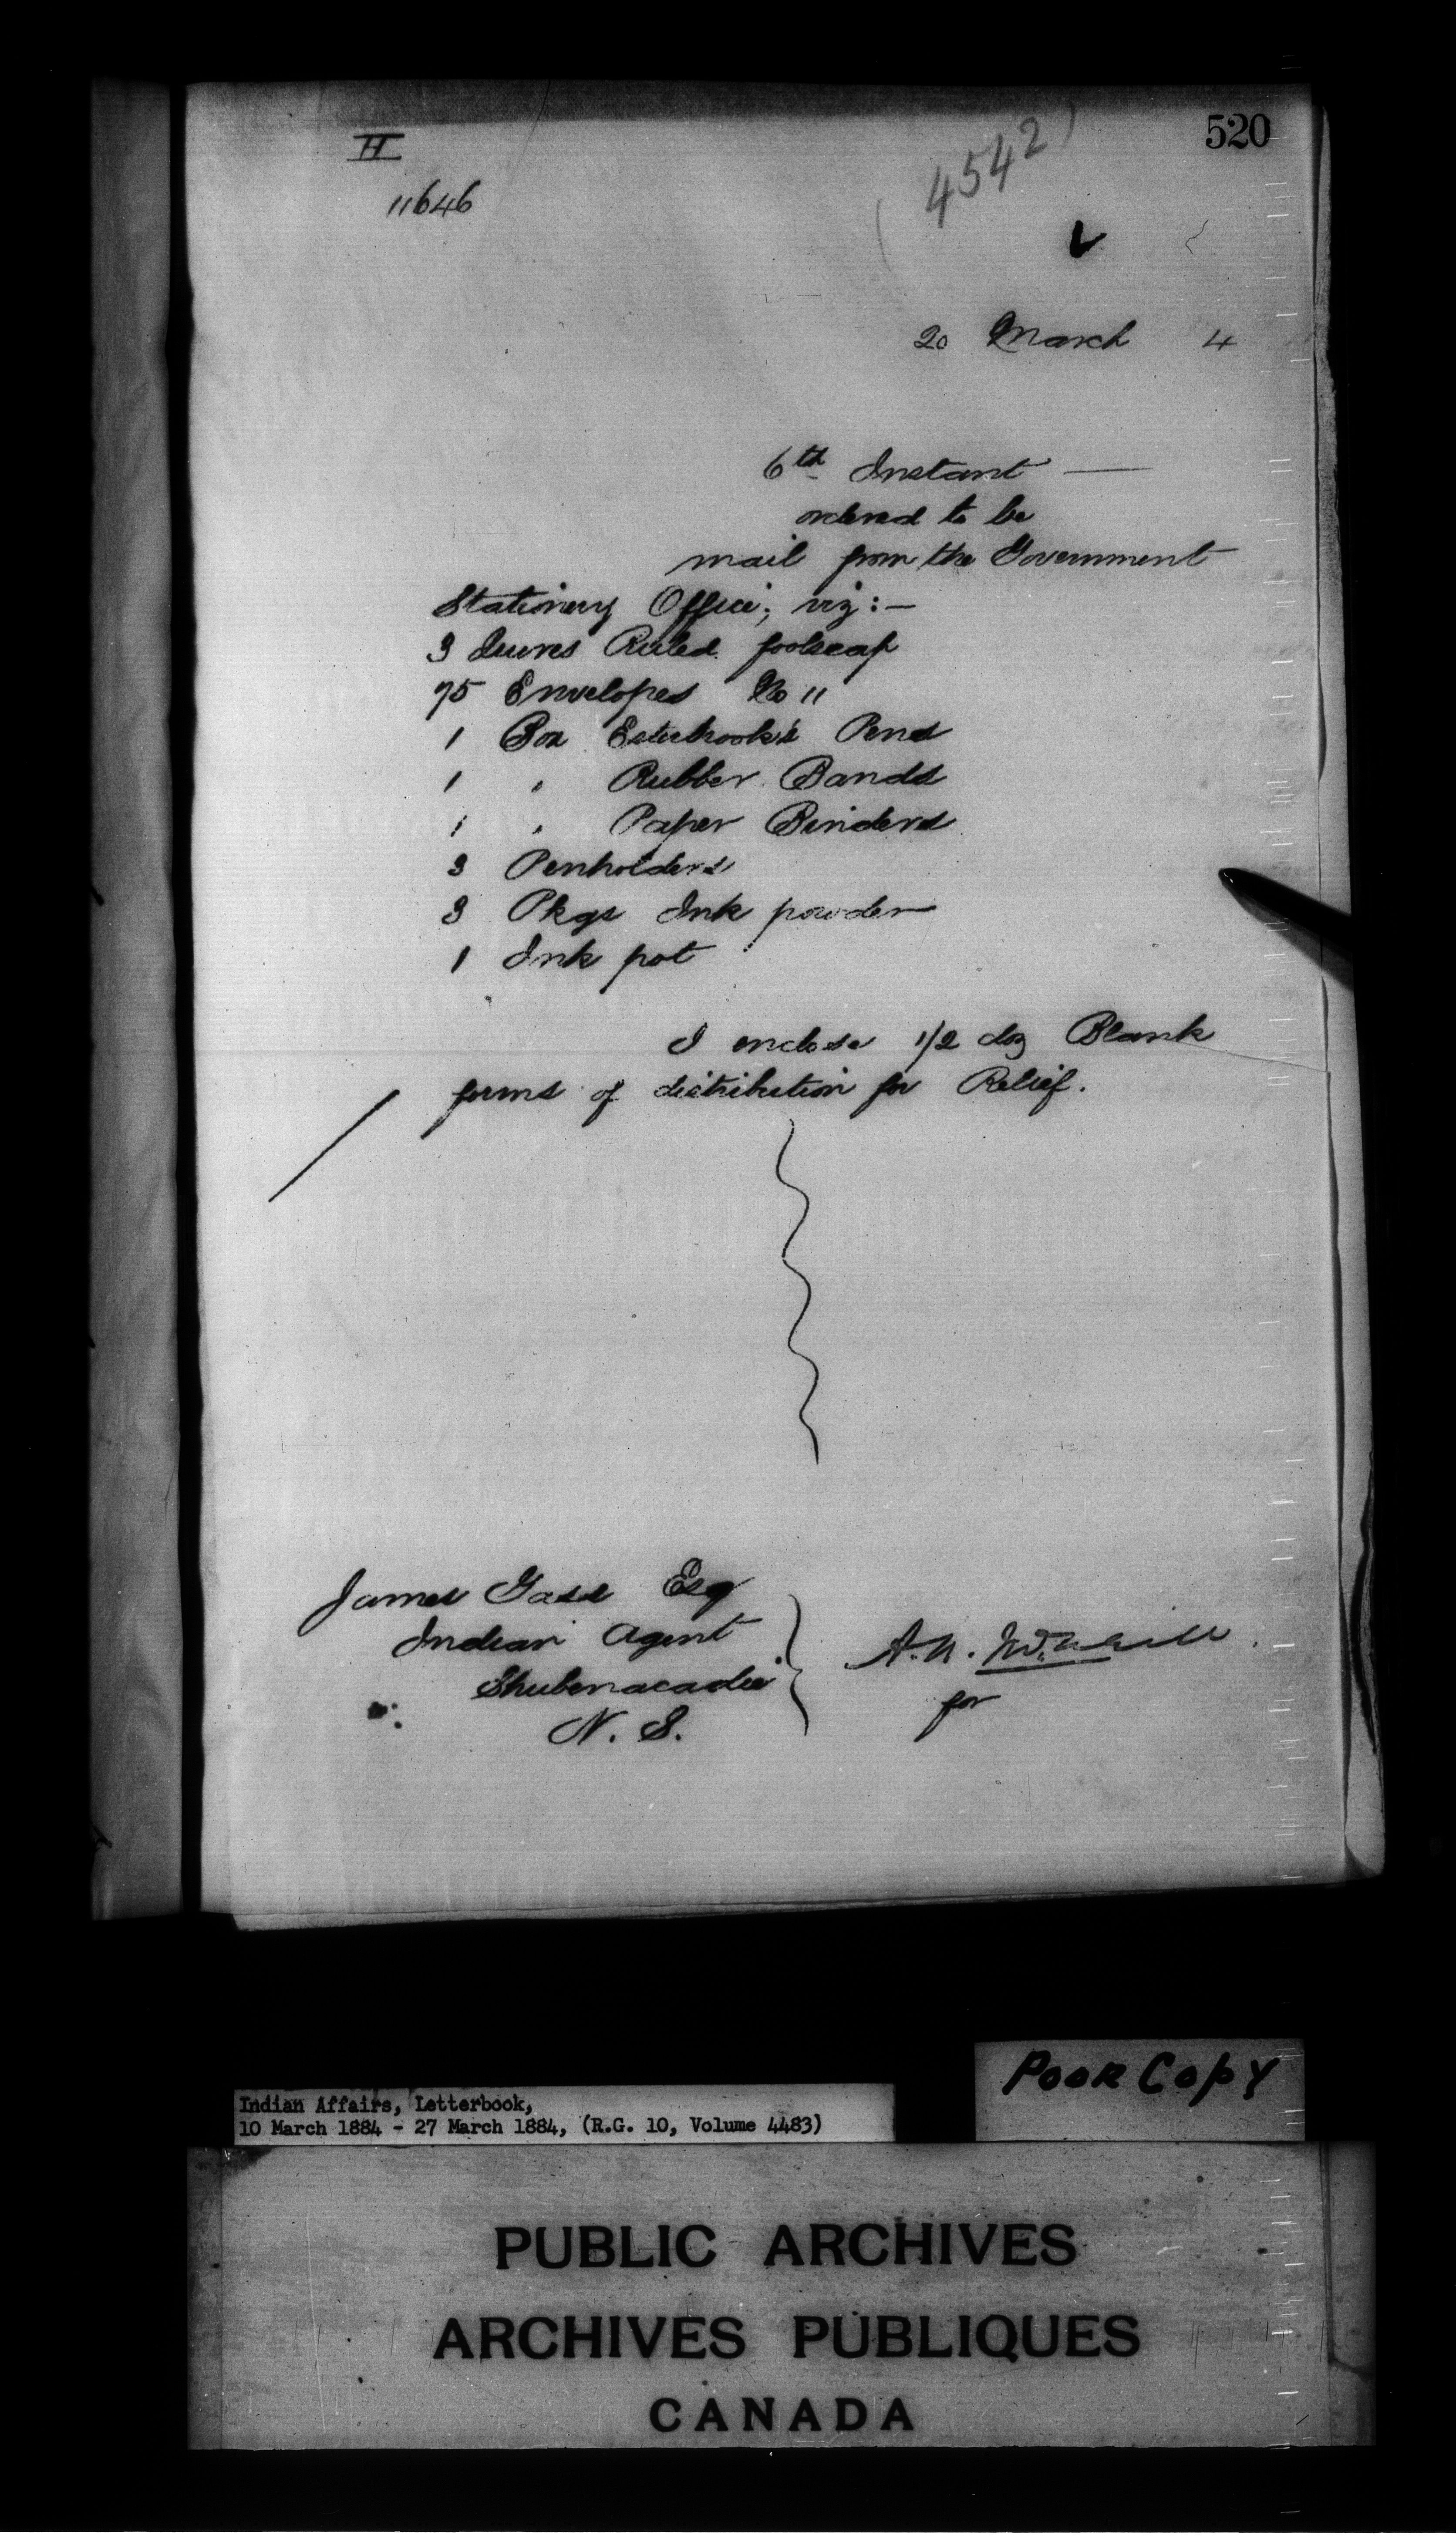 520
H
11646
(4542)
20 March 4
6th Instant —
ordered to be
mail from the Government
Stationery Office; viz:—
3 Quires Ruled foolscap
75 Envelopes No 11
1 Box Esterbrook's Pens
1 " Rubber Bands
1 " Paper Binders
3 Penholders
3 Pkgs Ink powder
1 Ink pot
I enclose 1/2 doz Blank
forms of distribution for Relief.
James Gass Esq
Indian Agent
Shubenacadie
N. S.
A. N. McNeill
for
POOR COPY
Indian Affairs, Letterbook,
10 March 1884 - 27 March 1884, (R.G. 10, Volume 4483)
PUBLIC ARCHIVES
ARCHIVES PUBLIQUES
CANADA